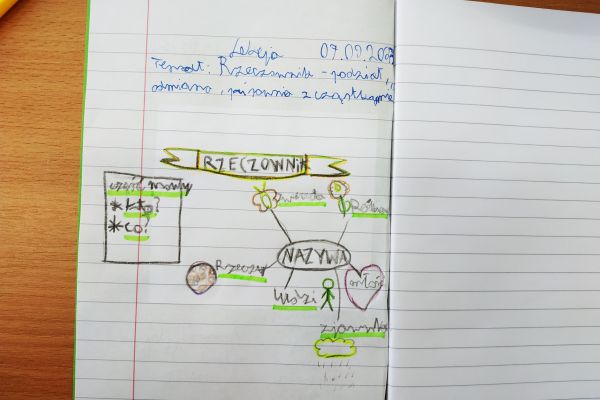 Lekcja 07.09.202
Temat: Rzeczownik - podział,
odmiana, pisownia z cząstką nie
RZECZOWNIK
część mowy
* kto?
* co?
Zwierzęta
Rośliny
NAZYWA
Rzeczy
Ludzi
miłość
zjawiska